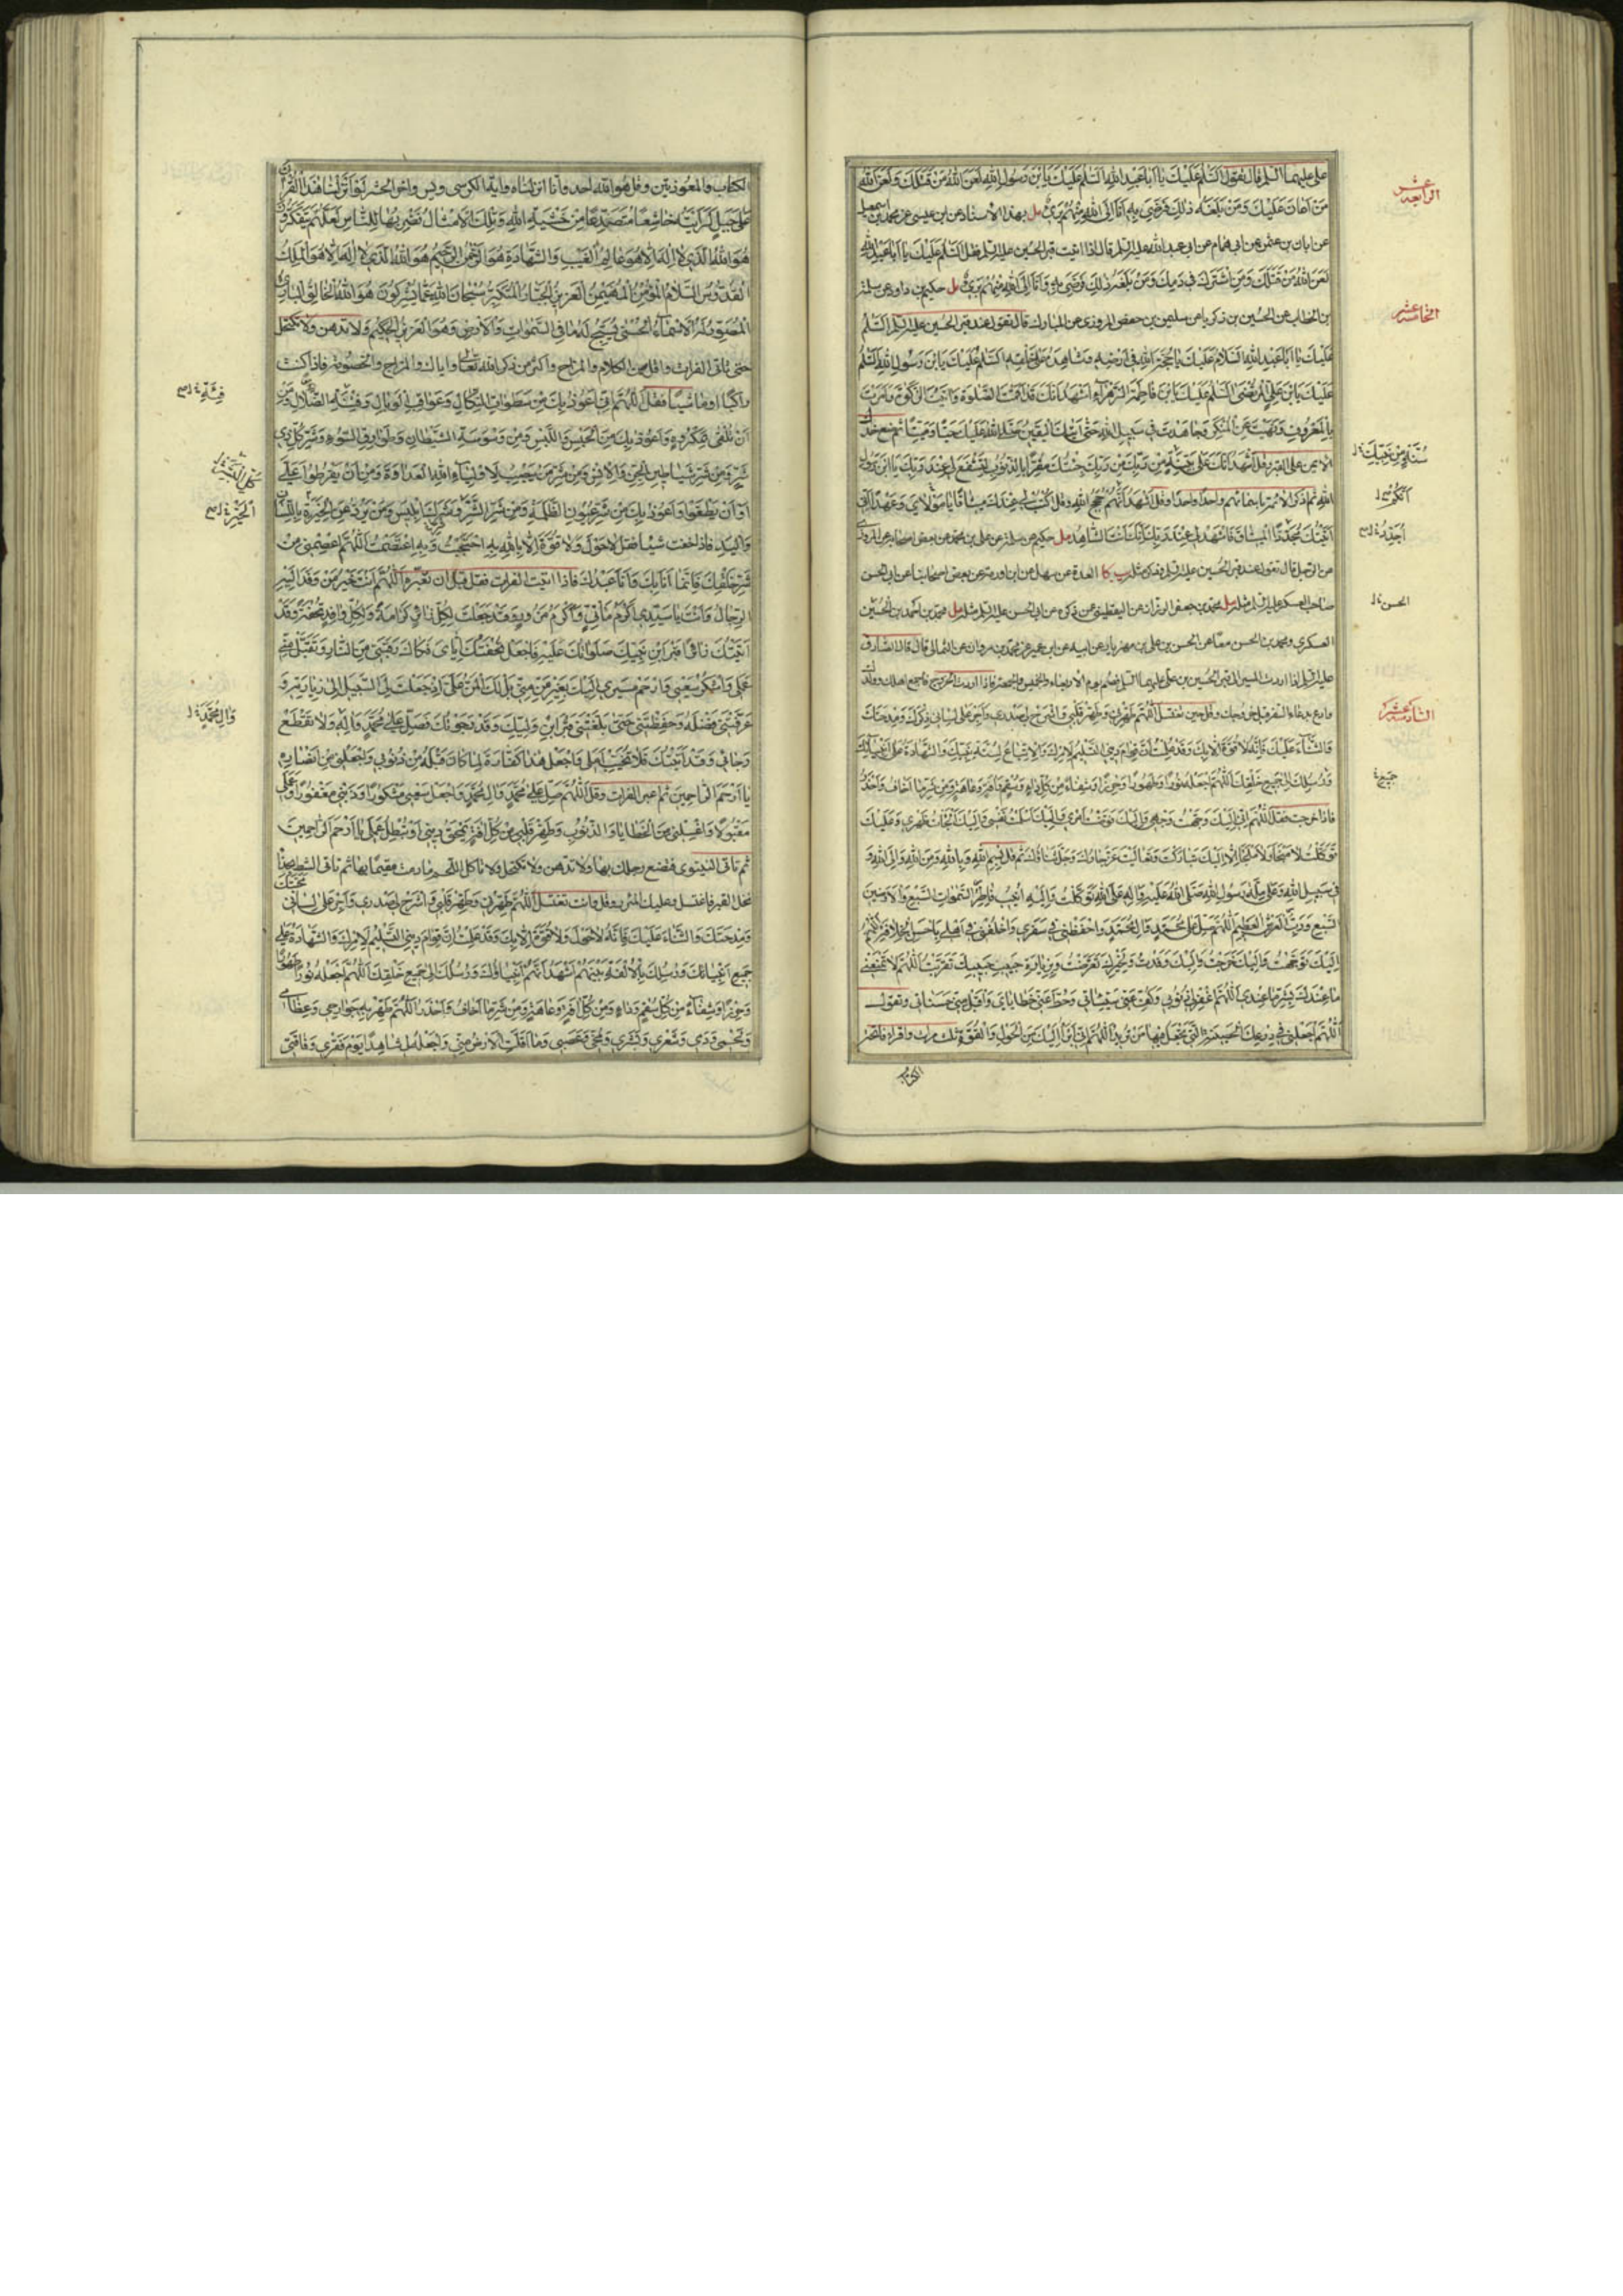 على عليهما السلم قال تقول السَّلَمُ عَلَيْكَ يا أبا عَبْدِ اللهِ السَّلَمُ عَلَيْكَ يَا بْنَ رَسُولِ اللهِ لَعَنَ اللهُ مَنْ قَتَلَكَ وَلَعَنَ اللهُ
مَنْ أَعَانَ عَلَيْكَ وَمَنْ بَلَغَهُ ذلِكَ فَرَضِيَ بِهِ أَنَا إلَى اللهِ مِنْهُمْ بَرِئٌ مل بهذا الاسناد عن ابن عيسى عن محمد بن اسمعيل
عن ابان بن عثمن عن ابى همام عن ابى عبد الله عليه السلم قال اذا اتيت قبر الحسين عليه السلم فقل السَّلَمُ عَلَيْكَ يا أبا عَبْدِ اللهِ
لَعَنَ اللهُ مَنْ قَتَلَكَ وَمَنِ اشْتَرَكَ فى دَمِكَ وَمَنْ بَلَغَهُ ذلِكَ فَرَضِيَ بِهِ وَأَنَا إلَى اللهِ مِنْهُمْ بَرِئٌ مل حكيم بن داود عن سلمة
بن الخطاب عن الحسين بن زكريا عن سليمن بن حفص المروزى عن المبارك قال تقول عند قبر الحسين عليه السلم السَّلَمُ
عَلَيْكَ يا أبا عَبْدِ اللهِ السَّلامُ عَلَيْكَ يا حُجَّةَ اللهِ فى أَرْضِهِ وَشاهِدَهُ عَلى خَلْقِهِ السَّلَمُ عَلَيْكَ يَا بْنَ رَسُولِ اللهِ السَّلَمُ
عَلَيْكَ يَا بْنَ عَلِيٍّ الْمُرْتَضى السَّلَمُ عَلَيْكَ يَا بْنَ فاطِمَةَ الزَّهْراءِ أَشْهَدُ أَنَّكَ قَدْ أَقَمْتَ الصَّلوةَ وَآتَيْتَ الزَّكوةَ وَأَمَرْتَ
بِالْمَعْرُوفِ وَنَهَيْتَ عَنِ الْمُنْكَرِ وَجاهَدْتَ فى سَبيلِ اللهِ حَتّى أَتيكَ الْيَقينُ صَلَّى اللهُ عَلَيْكَ حَيًّا وَمَيِّتًا ثم ضع خدك
الايمن على القبر وقل أَشْهَدُ أَنَّكَ عَلى بَيِّنَةٍ مِنْ رَبِّكَ جِئْتُكَ مُقِرًّا بِالذُّنُوبِ لِتَشْفَعَ لى عِنْدَ رَبِّكَ يَا بْنَ رَسُولِ
اللهِ ثم اذكر الائمة باسمائهم واحدا واحدا وقل أَشْهَدُ أَنَّهُمْ حُجَجُ اللهِ وقل اكْتُبْ لى عِنْدَكَ ميثاقًا يا مَوْلايَ وَعَهْدًا أَنّى
أَتَيْتُكَ مُجَدِّدًا الْميثاقَ فَاشْهَدْ لى عِنْدَ رَبِّكَ إنَّكَ أَنْتَ الشّاهِدُ مل حكيم عن سلمة عن على بن محمد عن بعض اصحابه عن المروزى
عن الرجل قال تقول عند قبر الحسين عليه السلم وذكر مثله يب كا العدة عن سهل عن ابن اورمة عن بعض اصحابنا عن ابى الحسن
صاحب العسكر عليه السلم مثله مل محمد بن جعفر الرزاز عن اليقطينى عمن ذكره عن ابى الحسن عليه السلم مثله مل محمد بن احمد بن الحسين
العسكرى ومحمد بن الحسن معا عن الحسن بن على بن مهزيار عن ابيه عن ابن ابى عمير عن محمد بن مروان عن الثمالى قال قال الصادق
عليه السلم اذا اردت المسير الى قبر الحسين بن على عليهما السلم فصم يوم الاربعاء والخميس والجمعة فاذا اردت الخروج فاجمع اهلك وولدك
وادع بدعاء السفر قبل خروجك وقل حين تغتسل اللّهُمَّ طَهِّرْنى وَطَهِّرْ قَلْبى وَاشْرَحْ لى صَدْرى وَأَجْرِ عَلى لِسانى ذِكْرَكَ وَمِدْحَتَكَ
وَالثَّناءَ عَلَيْكَ فَإنَّهُ لا قُوَّةَ إلاّ بِكَ وَقَدْ عَلِمْتُ أَنَّ قِوامَ دينى التَّسْليمُ لأَمْرِكَ وَالاِتِّباعُ لِسُنَّةِ نَبِيِّكَ وَالشَّهادَةُ عَلى أَنْبِيائِكَ
وَرُسُلِكَ إلى جَميعِ خَلْقِكَ اللّهُمَّ اجْعَلْهُ نُورًا وَطَهُورًا وَحِرْزًا وَشِفاءً مِنْ كُلِّ داءٍ وَسُقْمٍ وَآفَةٍ وَعاهَةٍ وَمِنْ شَرِّ ما أَخافُ وَأَحْذَرُ
فاذا خرجت فقل اللّهُمَّ إنّى إلَيْكَ وَجَّهْتُ وَجْهى وَإلَيْكَ فَوَّضْتُ أَمْرى وَإلَيْكَ أَسْلَمْتُ نَفْسى وَإلَيْكَ أَلْجَأْتُ ظَهْرى وَعَلَيْكَ
تَوَكَّلْتُ لا مَلْجَأَ وَلا مَنْجا إلاّ إلَيْكَ تَبارَكْتَ وَتَعالَيْتَ عَزَّ جارُكَ وَجَلَّ ثَناؤُكَ ثم قل بِسْمِ اللهِ وَبِاللهِ وَمِنَ اللهِ وَإلَى اللهِ وَ
فى سَبيلِ اللهِ وَعَلى مِلَّةِ رَسُولِ اللهِ صَلَّى اللهُ عَلَيْهِ وَآلِهِ عَلَى اللهِ تَوَكَّلْتُ وَإلَيْهِ أُنيبُ فاطِرِ السَّمواتِ السَّبْعِ وَالأَرَضينَ
السَّبْعِ وَرَبِّ الْعَرْشِ الْعَظيمِ اللّهُمَّ صَلِّ عَلى مُحَمَّدٍ وَآلِ مُحَمَّدٍ وَاحْفَظْنى فى سَفَرى وَاخْلُفْنى فى أَهْلى بِأَحْسَنِ الْخِلافَةِ اللّهُمَّ
إلَيْكَ تَوَجَّهْتُ وَإلَيْكَ خَرَجْتُ وَإلَيْكَ وَفَدْتُ وَلِخَيْرِكَ تَعَرَّضْتُ وَبِزِيارَةِ حَبيبِ حَبيبِكَ تَقَرَّبْتُ اللّهُمَّ لا تَمْنَعْنى
ما عِنْدَكَ بِشَرِّ ما عِنْدى اللّهُمَّ اغْفِرْ لى ذُنُوبى وَكَفِّرْ عَنّى سَيِّئاتى وَحُطَّ عَنّى خَطاياىَ وَاقْبَلْ مِنّى حَسَناتى وتقول
اللّهُمَّ اجْعَلْنى فى دِرْعِكَ الْحَصينَةِ الَّتى تَجْعَلُ فيها مَنْ تُريدُ اللّهُمَّ إنّى أَبْرَأُ إلَيْكَ مِنَ الْحَوْلِ وَالْقُوَّةِ ثلث مرات واقرا فاتحة
الكتاب
الرابعة عشر
الخامسة عشر
السادسة عشر
الكتاب والمعوذتين وقل هو الله احد وانا انزلناه واية الكرسى ويس واخر الحشر لَوْ أَنْزَلْنا هذَا الْقُرْآنَ
عَلى جَبَلٍ لَرَأَيْتَهُ خاشِعًا مُتَصَدِّعًا مِنْ خَشْيَةِ اللهِ وَتِلْكَ الأَمْثالُ نَضْرِبُها لِلنّاسِ لَعَلَّهُمْ يَتَفَكَّرُونَ
هُوَ اللهُ الَّذى لا إلهَ إلاّ هُوَ عالِمُ الْغَيْبِ وَالشَّهادَةِ هُوَ الرَّحْمنُ الرَّحيمُ هُوَ اللهُ الَّذى لا إلهَ إلاّ هُوَ الْمَلِكُ
الْقُدُّوسُ السَّلامُ الْمُؤْمِنُ الْمُهَيْمِنُ الْعَزيزُ الْجَبّارُ الْمُتَكَبِّرُ سُبْحانَ اللهِ عَمّا يُشْرِكُونَ هُوَ اللهُ الْخالِقُ الْبارِئُ
الْمُصَوِّرُ لَهُ الأَسْماءُ الْحُسْنى يُسَبِّحُ لَهُ ما فِى السَّمواتِ وَالأَرْضِ وَهُوَ الْعَزيزُ الْحَكيمُ ولا تدهن ولا تكتحل
حتى تاتى الفرات واقل من الكلام والمزاح واكثر من ذكر الله تعالى واياك والمزاح والخصومة فاذا كنت
راكبا او ماشيا فقل اللّهُمَّ إنّى أَعُوذُ بِكَ مِنْ سَطَواتِ النَّكالِ وَعَواقِبِ الْوَبالِ وَفِتْنَةِ الضَّلالِ وَمِنْ
أَنْ تَلْقانى بِمَكْرُوهٍ وَأَعُوذُ بِكَ مِنَ الْحَبْسِ وَاللَّبْسِ وَمِنْ وَسْوَسَةِ الشَّيْطانِ وَطَوارِقِ السُّوءِ وَشَرِّ كُلِّ ذى
شَرٍّ وَمِنْ شَرِّ شَياطينِ الْجِنِّ وَالإنْسِ وَمِنْ شَرِّ مَنْ يَنْصِبُ لأَوْلِياءِ اللهِ الْعَداوَةَ وَمِنْ أَنْ يَفْرُطُوا عَلَيَّ
أَوْ أَنْ يَطْغَوْا وَأَعُوذُ بِكَ مِنْ شَرِّ عُيُونِ الظَّلَمَةِ وَمِنْ شَرِّ الشَّرِّ وَشَرَكِ إبْليسَ وَمَنْ يَرُدُّ عَنِ الْخَيْرِ بِاللِّسانِ
وَالْيَدِ فاذا خفت شيئا فقل لا حَوْلَ وَلا قُوَّةَ إلاّ بِاللهِ بِهِ احْتَجَبْتُ وَبِهِ اعْتَصَمْتُ اللّهُمَّ اعْصِمْنى مِنْ
شَرِّ خَلْقِكَ فَإنَّما أَنَا بِكَ وَأَنَا عَبْدُكَ فاذا اتيت الفرات فقل قبل ان تعبره اللّهُمَّ أَنْتَ خَيْرُ مَنْ وَفَدَ إلَيْهِ
الرِّجالُ وَأَنْتَ يا سَيِّدى أَكْرَمُ مَأْتِيٍّ وَأَكْرَمُ مَزُورٍ وَقَدْ جَعَلْتَ لِكُلِّ زائِرٍ كَرامَةً وَلِكُلِّ وافِدٍ تُحْفَةً وَقَدْ
أَتَيْتُكَ زائِرًا قَبْرَ ابْنِ نَبِيِّكَ صَلَواتُكَ عَلَيْهِ فَاجْعَلْ تُحْفَتَكَ إيّاىَ فَكاكَ رَقَبَتى مِنَ النّارِ وَتَقَبَّلْ مِنّى
عَمَلى وَاشْكُرْ سَعْيى وَارْحَمْ مَسيرى إلَيْكَ بِغَيْرِ مَنٍّ مِنّى بَلْ لَكَ الْمَنُّ عَلَيَّ إذْ جَعَلْتَ لِىَ السَّبيلَ إلى زِيارَتِهِ وَ
عَرَّفْتَنى فَضْلَهُ وَحَفِظْتَنى حَتّى بَلَّغْتَنى قَبْرَ ابْنِ وَلِيِّكَ وَقَدْ رَجَوْتُكَ فَصَلِّ عَلى مُحَمَّدٍ وَآلِهِ وَلا تَقْطَعْ
رَجائى وَقَدْ أَتَيْتُكَ فَلا تُخَيِّبْ أَمَلى وَاجْعَلْ هذا كَفّارَةً لِما كانَ قَبْلَهُ مِنْ ذُنُوبى وَاجْعَلْنى مِنْ أَنْصارِهِ
يا أَرْحَمَ الرّاحِمينَ ثم اعبر الفرات وقل اللّهُمَّ صَلِّ عَلى مُحَمَّدٍ وَآلِ مُحَمَّدٍ وَاجْعَلْ سَعْيى مَشْكُورًا وَذَنْبى مَغْفُورًا وَعَمَلى
مَقْبُولاً وَاغْسِلْنى مِنَ الْخَطايا وَالذُّنُوبِ وَطَهِّرْ قَلْبى مِنْ كُلِّ آفَةٍ تَمْحَقُ دينى أَوْ تُبْطِلُ عَمَلى يا أَرْحَمَ الرّاحِمينَ
ثم تاتى النينوى فتضع رحلك بها ولا تدهن ولا تكتحل ولا تاكل اللحم ما دمت مقيما بها ثم تاتى الشط بحذاء
نخل القبر فاغتسل وعليك المئزر وقل وانت تغتسل اللّهُمَّ طَهِّرْنى وَطَهِّرْ قَلْبى وَاشْرَحْ لى صَدْرى وَأَجْرِ عَلى لِسانى مَحَبَّتَكَ
وَمِدْحَتَكَ وَالثَّناءَ عَلَيْكَ فَإنَّهُ لا حَوْلَ وَلا قُوَّةَ إلاّ بِكَ وَقَدْ عَلِمْتُ أَنَّ قِوامَ دينى التَّسْليمُ لأَمْرِكَ وَالشَّهادَةُ عَلى
جَميعِ أَنْبِيائِكَ وَرُسُلِكَ بِالأُلْفَةِ بَيْنَهُمْ أَشْهَدُ أَنَّهُمْ أَنْبِياؤُكَ وَرُسُلُكَ إلى جَميعِ خَلْقِكَ اللّهُمَّ اجْعَلْهُ نُورًا وَطَهُورًا
وَحِرْزًا وَشِفاءً مِنْ كُلِّ سُقْمٍ وَداءٍ وَمِنْ كُلِّ آفَةٍ وَعاهَةٍ وَمِنْ شَرِّ ما أَخافُ وَأَحْذَرُ اللّهُمَّ طَهِّرْ بِهِ جَوارِحى وَعِظامى
وَلَحْمى وَدَمى وَشَعْرى وَبَشَرى وَمُخّى وَعَصَبى وَما أَقَلَّتِ الأَرْضُ مِنّى وَاجْعَلْهُ لى شاهِدًا يَوْمَ فَقْرى وَفاقَتى